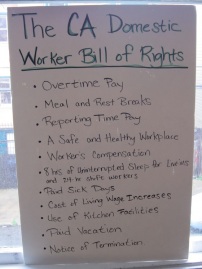 The CA Domestic
Worker Bill of Rights
• Overtime Pay
• Meal and Rest Breaks
• Reporting Time Pay
• A Safe and Healthy Workplace
• Worker's Compensation
• 8 hrs of Uninterrupted Sleep for Live ins
and 24 hr shift workers
• Paid Sick Days
• Cost of Living Wage Increases
• Use of Kitchen Facilities
• Paid Vacation
• Notice of Termination